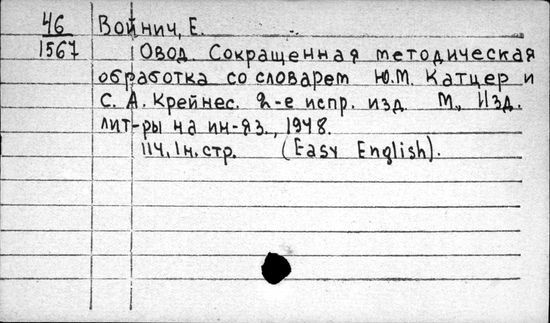 46 Войнич, Е.
1567 Овод. Сокращенная методическая
обработка со словарем Ю.М. Катцер и
С. А. Крейнес. 2-е испр. изд. М., Изд.
лит-ры на ин-яз., 1948.
114, 1 н. стр. (Easy English).